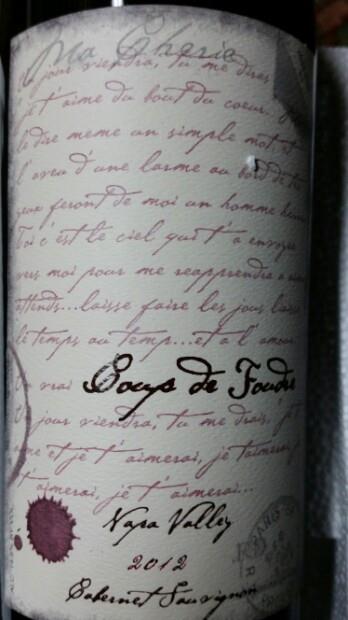 Ma Cherie
Un jour viendra, tu me diras
je t'aime du bout du coeur.
le dire meme un simple mot, et
l'aveu d'une larme au bord de tes
yeux feront de moi un homme
Toi c'est le ciel qui t'a envoyée
vers moi pour me reapprendre a
attends...laisse faire les jours laisse
le temps au temp...et a l'amour
Un vrai Coup de Foudre
Un jour viendra, tu me diras, je t'
aime et je t'aimerai, je t'aimerai
t'aimerai, je t'aimerai...
Napa Valley
2012
Cabernet Sauvignon